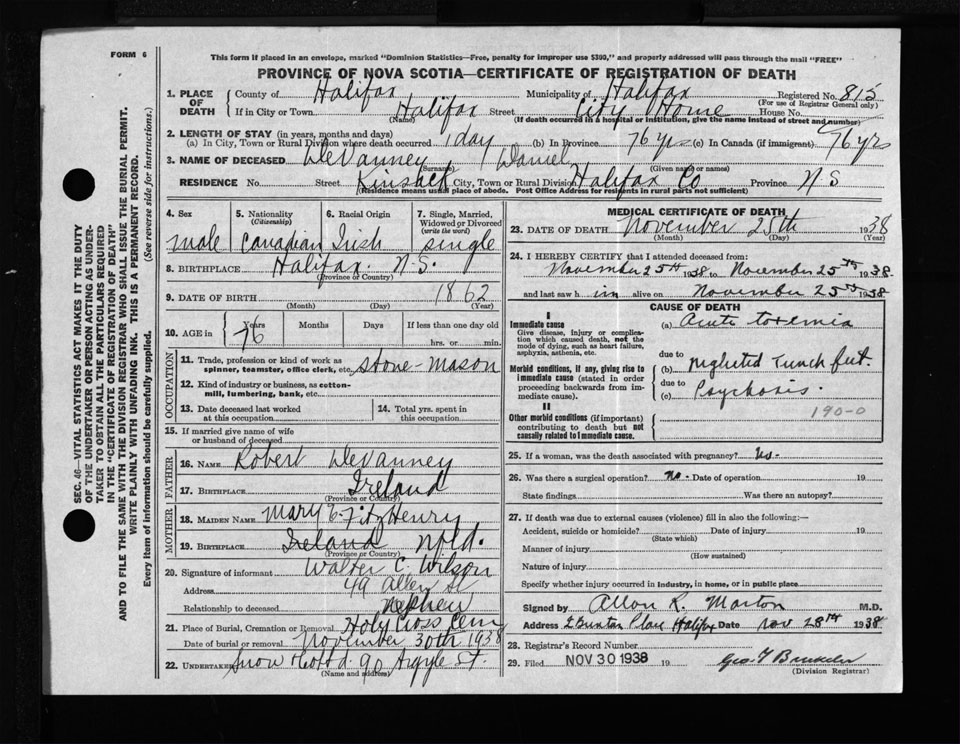 FORM 6
This form if placed in an envelope, marked "Dominion Statistics—Free, penalty for improper use $300," and properly addressed will pass through the mail "FREE"
PROVINCE OF NOVA SCOTIA—CERTIFICATE OF REGISTRATION OF DEATH
1. PLACE OF DEATH County of Halifax Municipality of Halifax Registered No. 815
(For use of Registrar General only)
If in City or Town Halifax Street City Home House No.
(Name) (If death occurred in a hospital or institution, give the name instead of street and number)
2. LENGTH OF STAY (in years, months and days)
(a) In City, Town or Rural Division where death occurred 1 day (b) In Province 76 yrs (c) In Canada (if immigrant) 76 yrs
3. NAME OF DECEASED DeVanney Daniel
(Surname) (Given name or names)
RESIDENCE No. Street Kinsack City, Town or Rural Division Halifax Co Province N S
(Residence means usual place of abode. Post Office Address for residents in rural parts not sufficient)
4. Sex 5. Nationality (Citizenship) 6. Racial Origin 7. Single, Married, Widowed or Divorced (write the word)
male Canadian Irish single
8. BIRTHPLACE Halifax. N.S.
(Province or Country)
9. DATE OF BIRTH 1862
(Month) (Day) (Year)
10. AGE in 76 Years Months Days If less than one day old
hrs. or min.
OCCUPATION
11. Trade, profession or kind of work as spinner, teamster, office clerk, etc. Stone-Mason
12. Kind of industry or business, as cotton-mill, lumbering, bank, etc.
13. Date deceased last worked at this occupation 14. Total yrs. spent in this occupation
15. If married give name of wife or husband of deceased
FATHER
16. NAME Robert DeVanney
17. BIRTHPLACE Ireland
(Province or Country)
MOTHER
18. MAIDEN NAME Mary E Fitz Henry
19. BIRTHPLACE Ireland Nfld.
(Province or Country)
20. Signature of informant Walter C. Wilson
Address 49 Allen St
Relationship to deceased Nephew
21. Place of Burial, Cremation or Removal Holy Cross Cem
Date of burial or removal November 30th 1938
22. UNDERTAKER Snow 90 Argyle St.
(Name and address)
MEDICAL CERTIFICATE OF DEATH
23. DATE OF DEATH November 25th 1938
(Month) (Day) (Year)
24. I HEREBY CERTIFY that I attended deceased from:
November 25th 1938 to November 25th 1938.
and last saw h im alive on November 25th 1938
CAUSE OF DEATH
I
Immediate cause
Give disease, injury or complication which caused death, not the mode of dying, such as heart failure, asphyxia, asthenia, etc.
(a) Acute toxemia
due to
Morbid conditions, if any, giving rise to immediate cause (stated in order proceeding backwards from immediate cause).
(b) Neglected Trench feet.
due to
(c) Psychosis.
190-0
II
Other morbid conditions (if important) contributing to death but not causally related to immediate cause.
25. If a woman, was the death associated with pregnancy? No.
26. Was there a surgical operation? No. Date of operation 19
State findings Was there an autopsy?
27. If death was due to external causes (violence) fill in also the following:—
Accident, suicide or homicide? Date of injury 19
(State which)
Manner of injury
(How sustained)
Nature of injury
Specify whether injury occurred in industry, in home, or in public place
Signed by Allan R. Morton M.D.
Address Place Halifax Date Nov 28th 1938
28. Registrar's Record Number
29. Filed NOV 30 1938 19
(Division Registrar)
SEC. 46—VITAL STATISTICS ACT MAKES IT THE DUTY OF THE UNDERTAKER OR PERSON ACTING AS UNDERTAKER TO OBTAIN ALL THE PARTICULARS REQUIRED IN THE "CERTIFICATE OF REGISTRATION OF DEATH"
AND TO FILE THE SAME WITH THE DIVISION REGISTRAR WHO SHALL ISSUE THE BURIAL PERMIT.
WRITE PLAINLY WITH UNFADING INK. THIS IS A PERMANENT RECORD.
Every item of information should be carefully supplied. (See reverse side for instructions.)